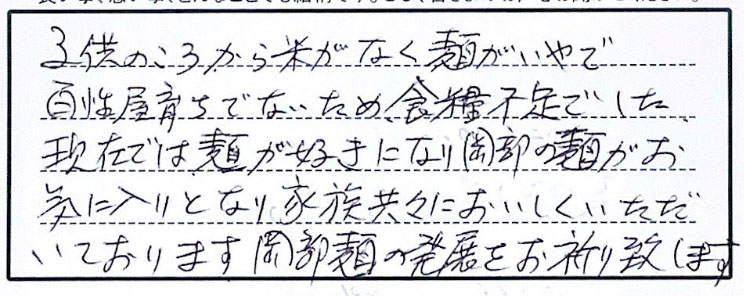 子供のころから米がなく麺がいやで
百性屋育ちでないため食糧不足でした
現在では麺が好きになり岡部の麺がお
気に入りとなり家族共々においしくいただ
いております岡部麺の発展をお祈り致します